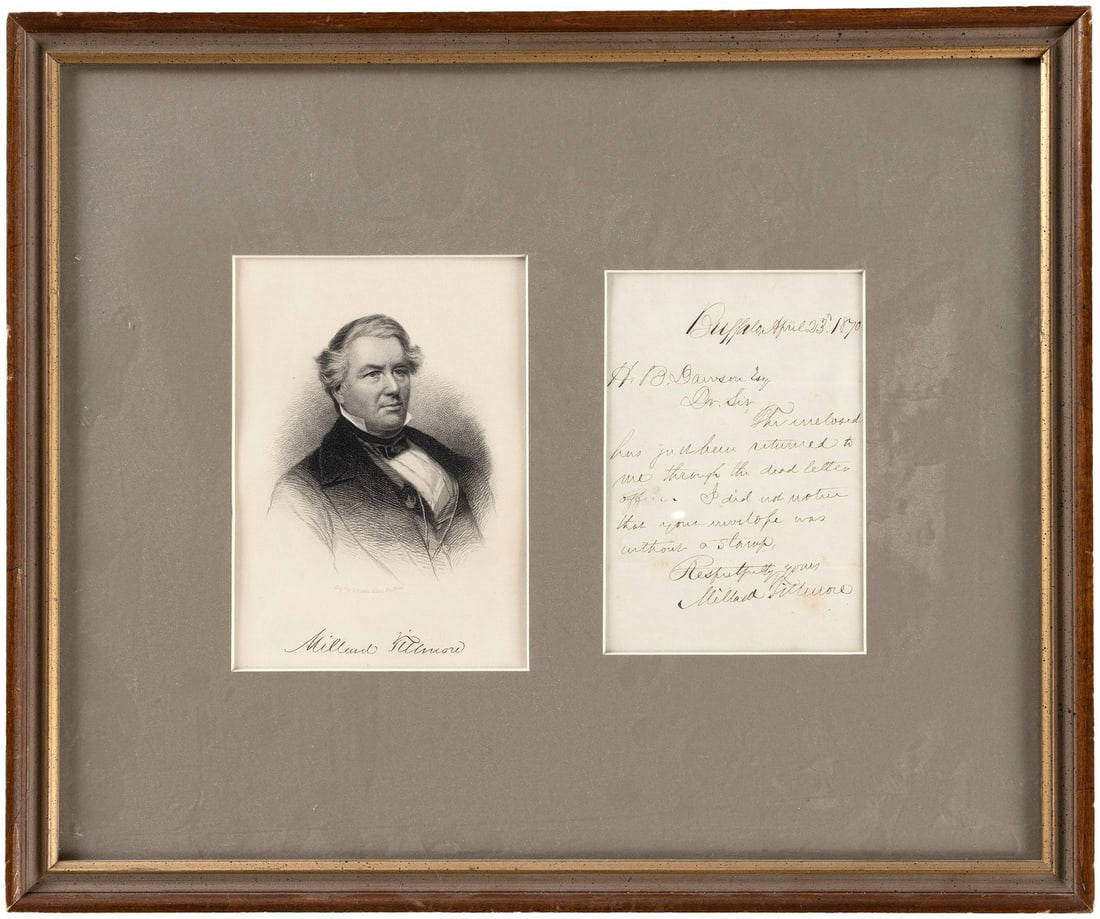 Millard Fillmore
Buffalo, April 23d. 1870
H. B. Dawson Esq
Dr. Sir,
The inclosed
has just been returned to
me through the dead letter
office. I did not notice
that your envelope was
without a stamp.
Respectfully yours
Millard Fillmore